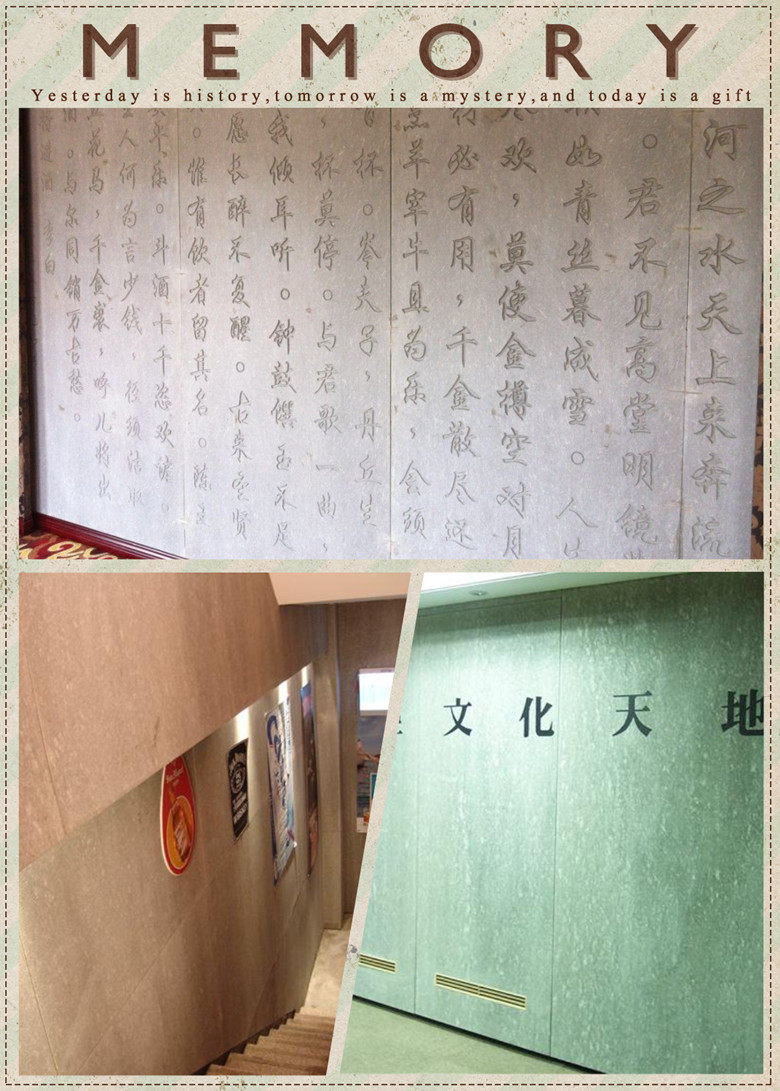 MEMORY
Yesterday is history,tomorrow is a mystery,and today is a gift
河之水天上来奔流
。君不见高堂明镜
如青丝暮成雪。人生
欢，莫使金樽空对月
必有用，千金散尽还
烹羊宰牛且为乐，会须
百杯。岑夫子，丹丘生
，杯莫停。与君歌一曲，
我倾耳听。钟鼓馔玉不足
愿长醉不复醒。古来圣贤
。惟有饮者留其名。陈王
平乐。斗酒十千恣欢谑。
主人何为言少钱，径须沽取
五花马，千金裘，呼儿将出
酒。与尔同销万古愁。
将进酒 李白
文化天地